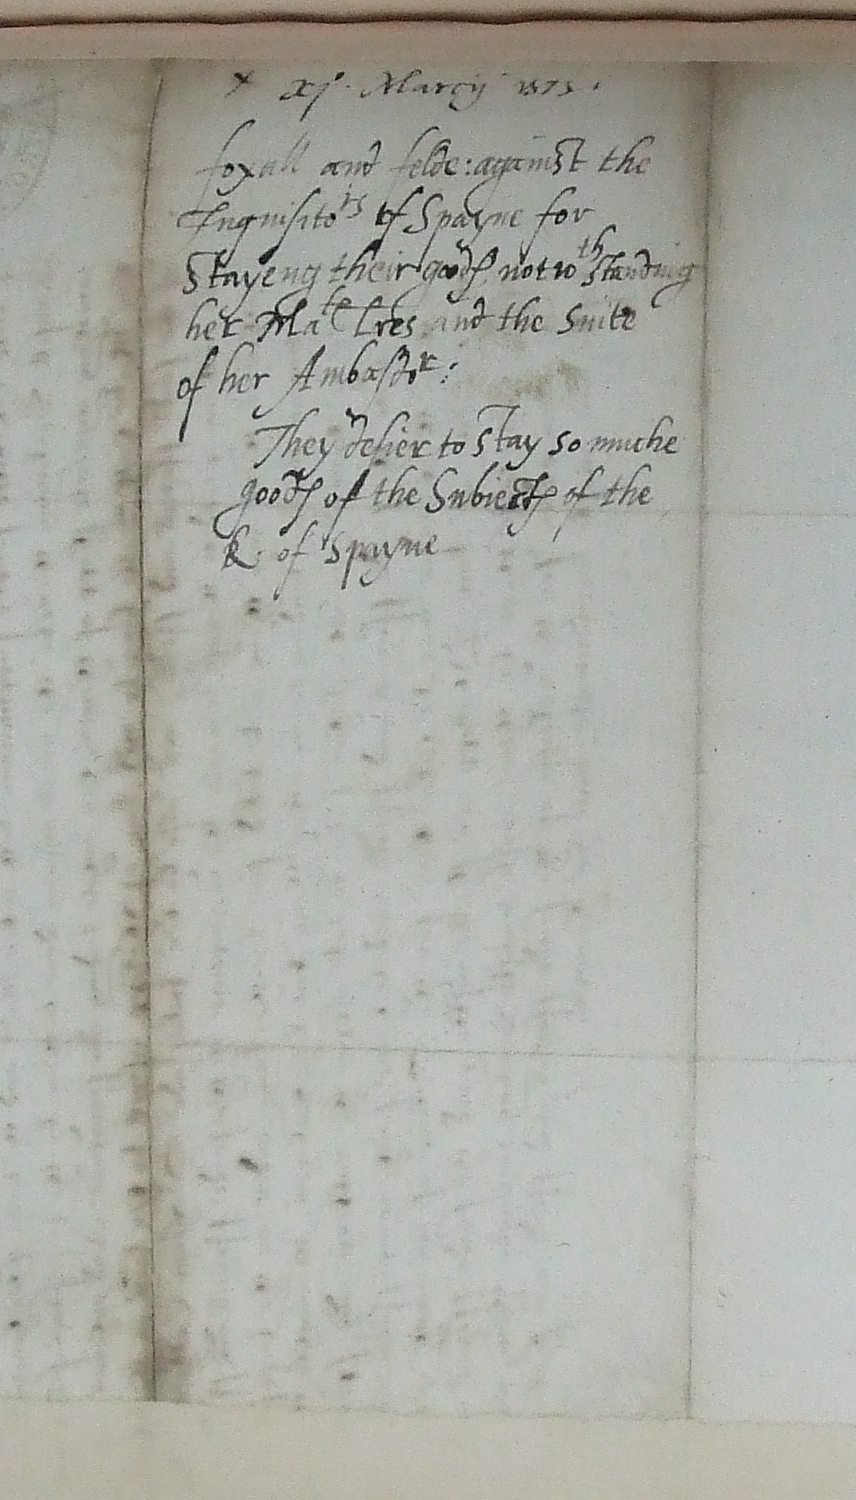 + xj. Marcij 1573.
foxall and felde: against the
Inquisitors of Spayne for
Stayeng their goodes notwthstanding
her Mate lres and the Suite
of her Ambassdor:
They desier to stay so muche
goodes of the Subiectes of the
K. of Spayne